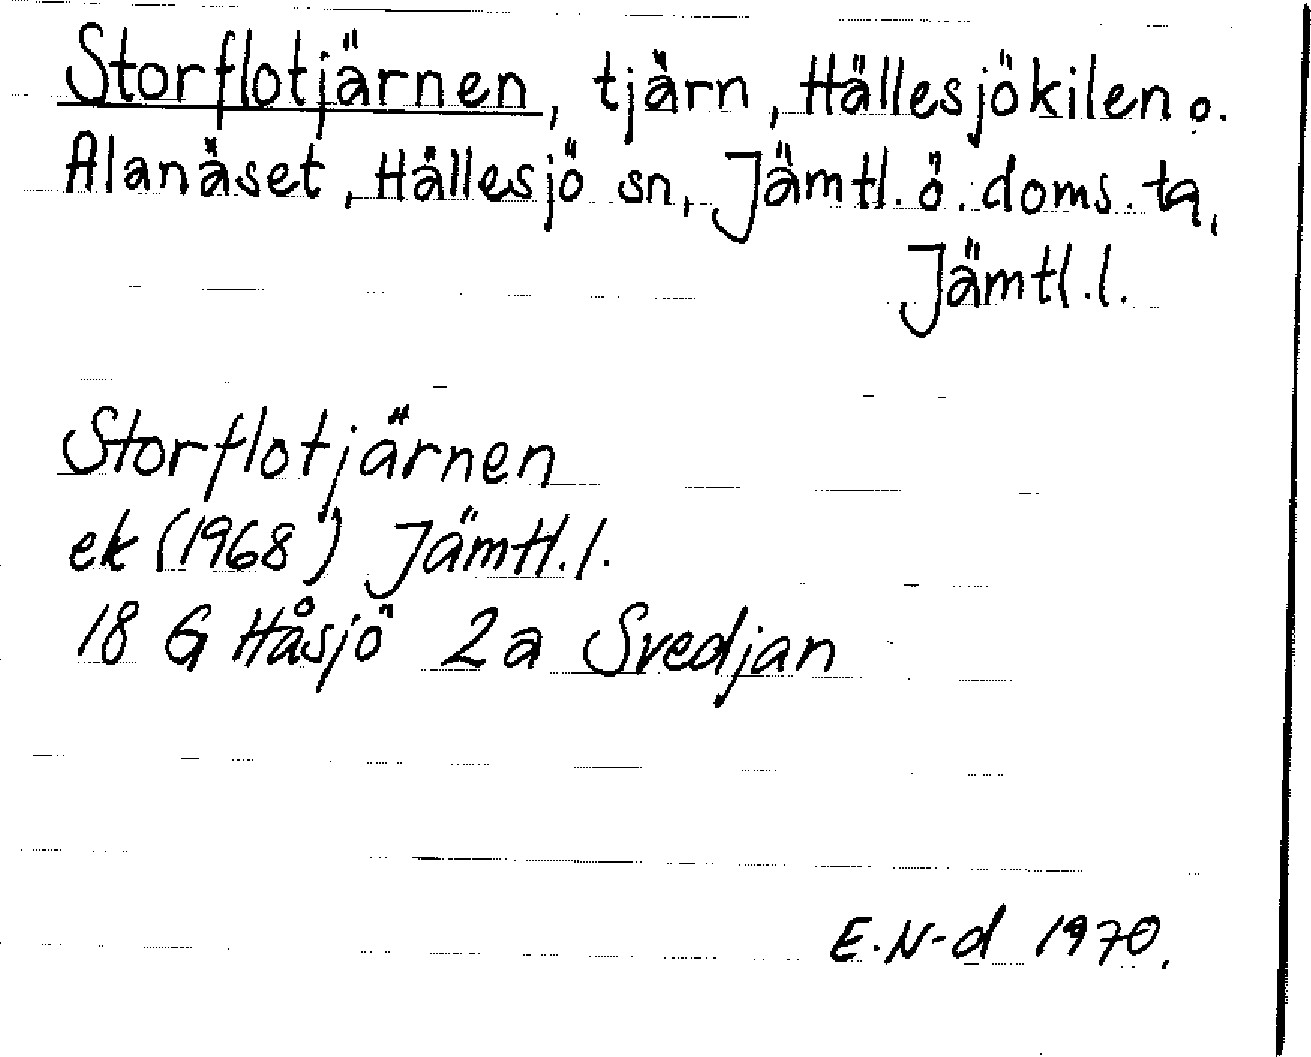 Storflotjärnen, tjärn, Hällesjökilen o.
Alanäset, Hällesjö sn, Jämtl. ö. doms. ta,
Jämtl. l.
Storflotjärnen
ek (1968) Jämtl. l.
18 G Håsjö 2a Svedjan
E. N-d 1970.